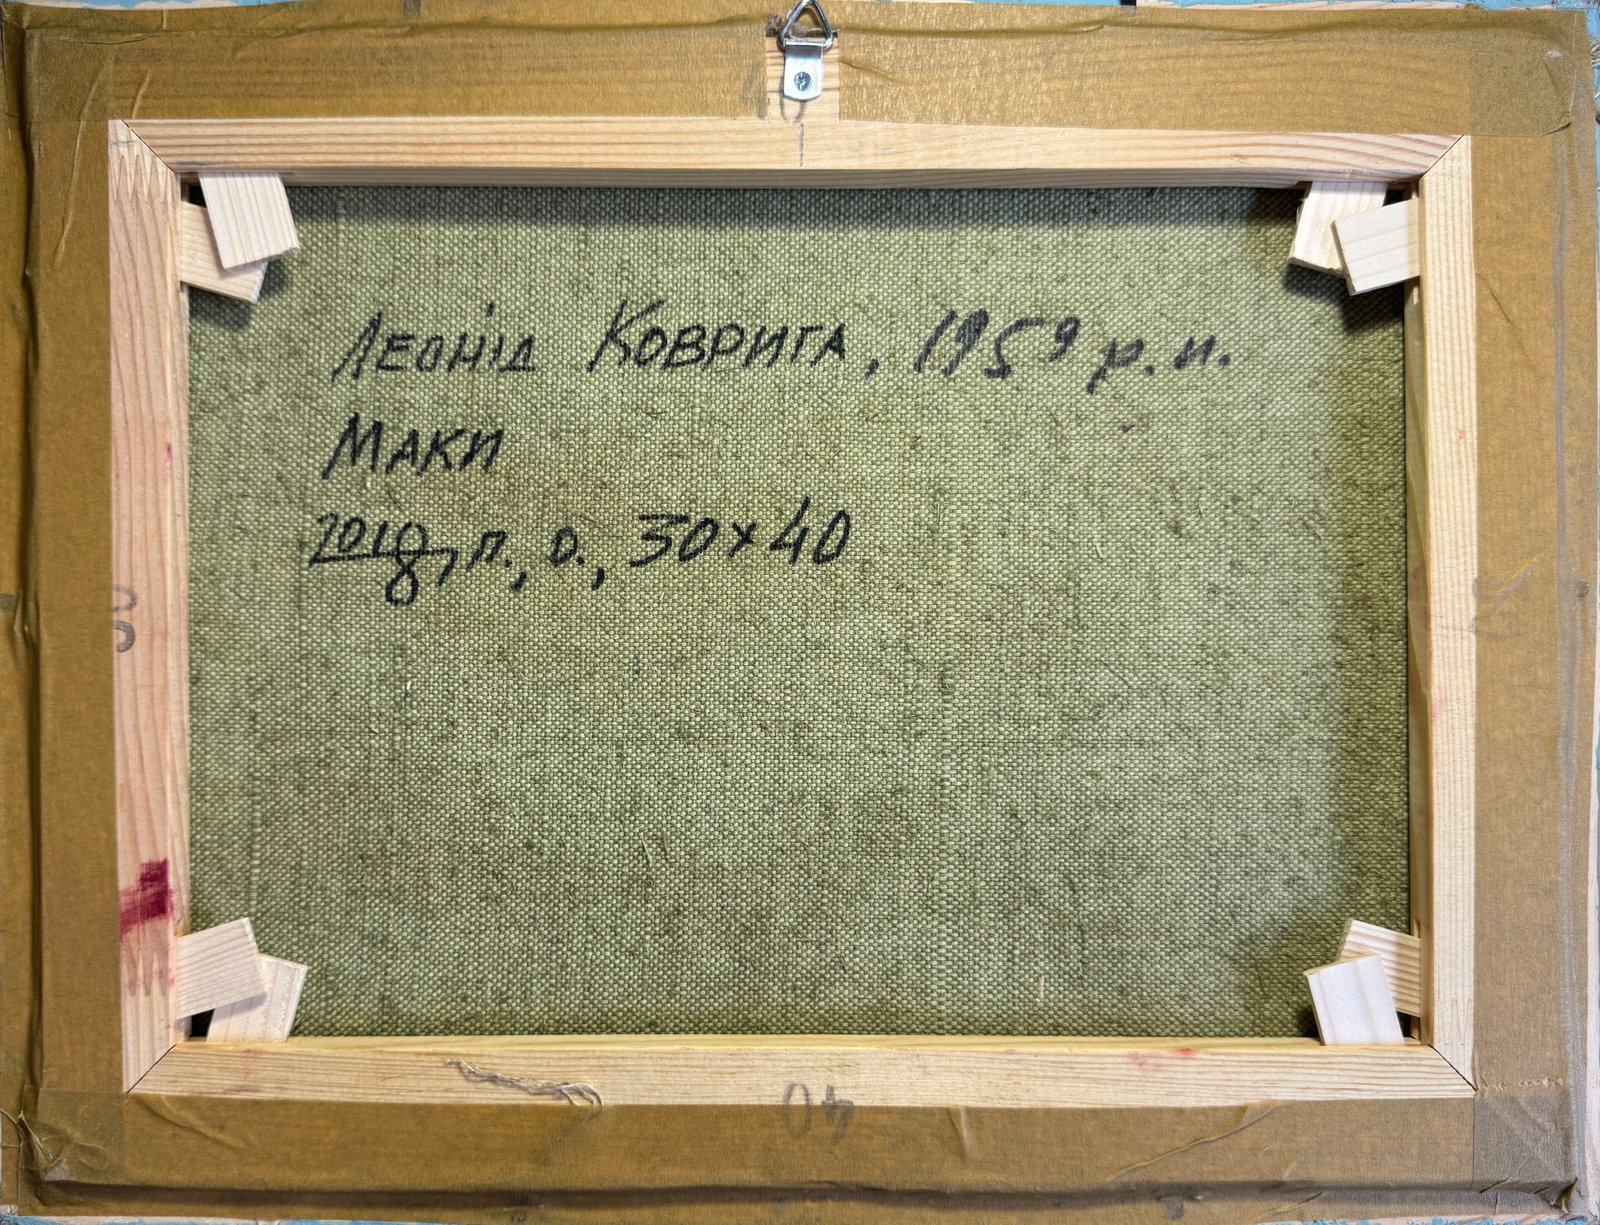 Леонід Коврига, 1959 р.н.
Маки
2018, п., о., 30x40
40